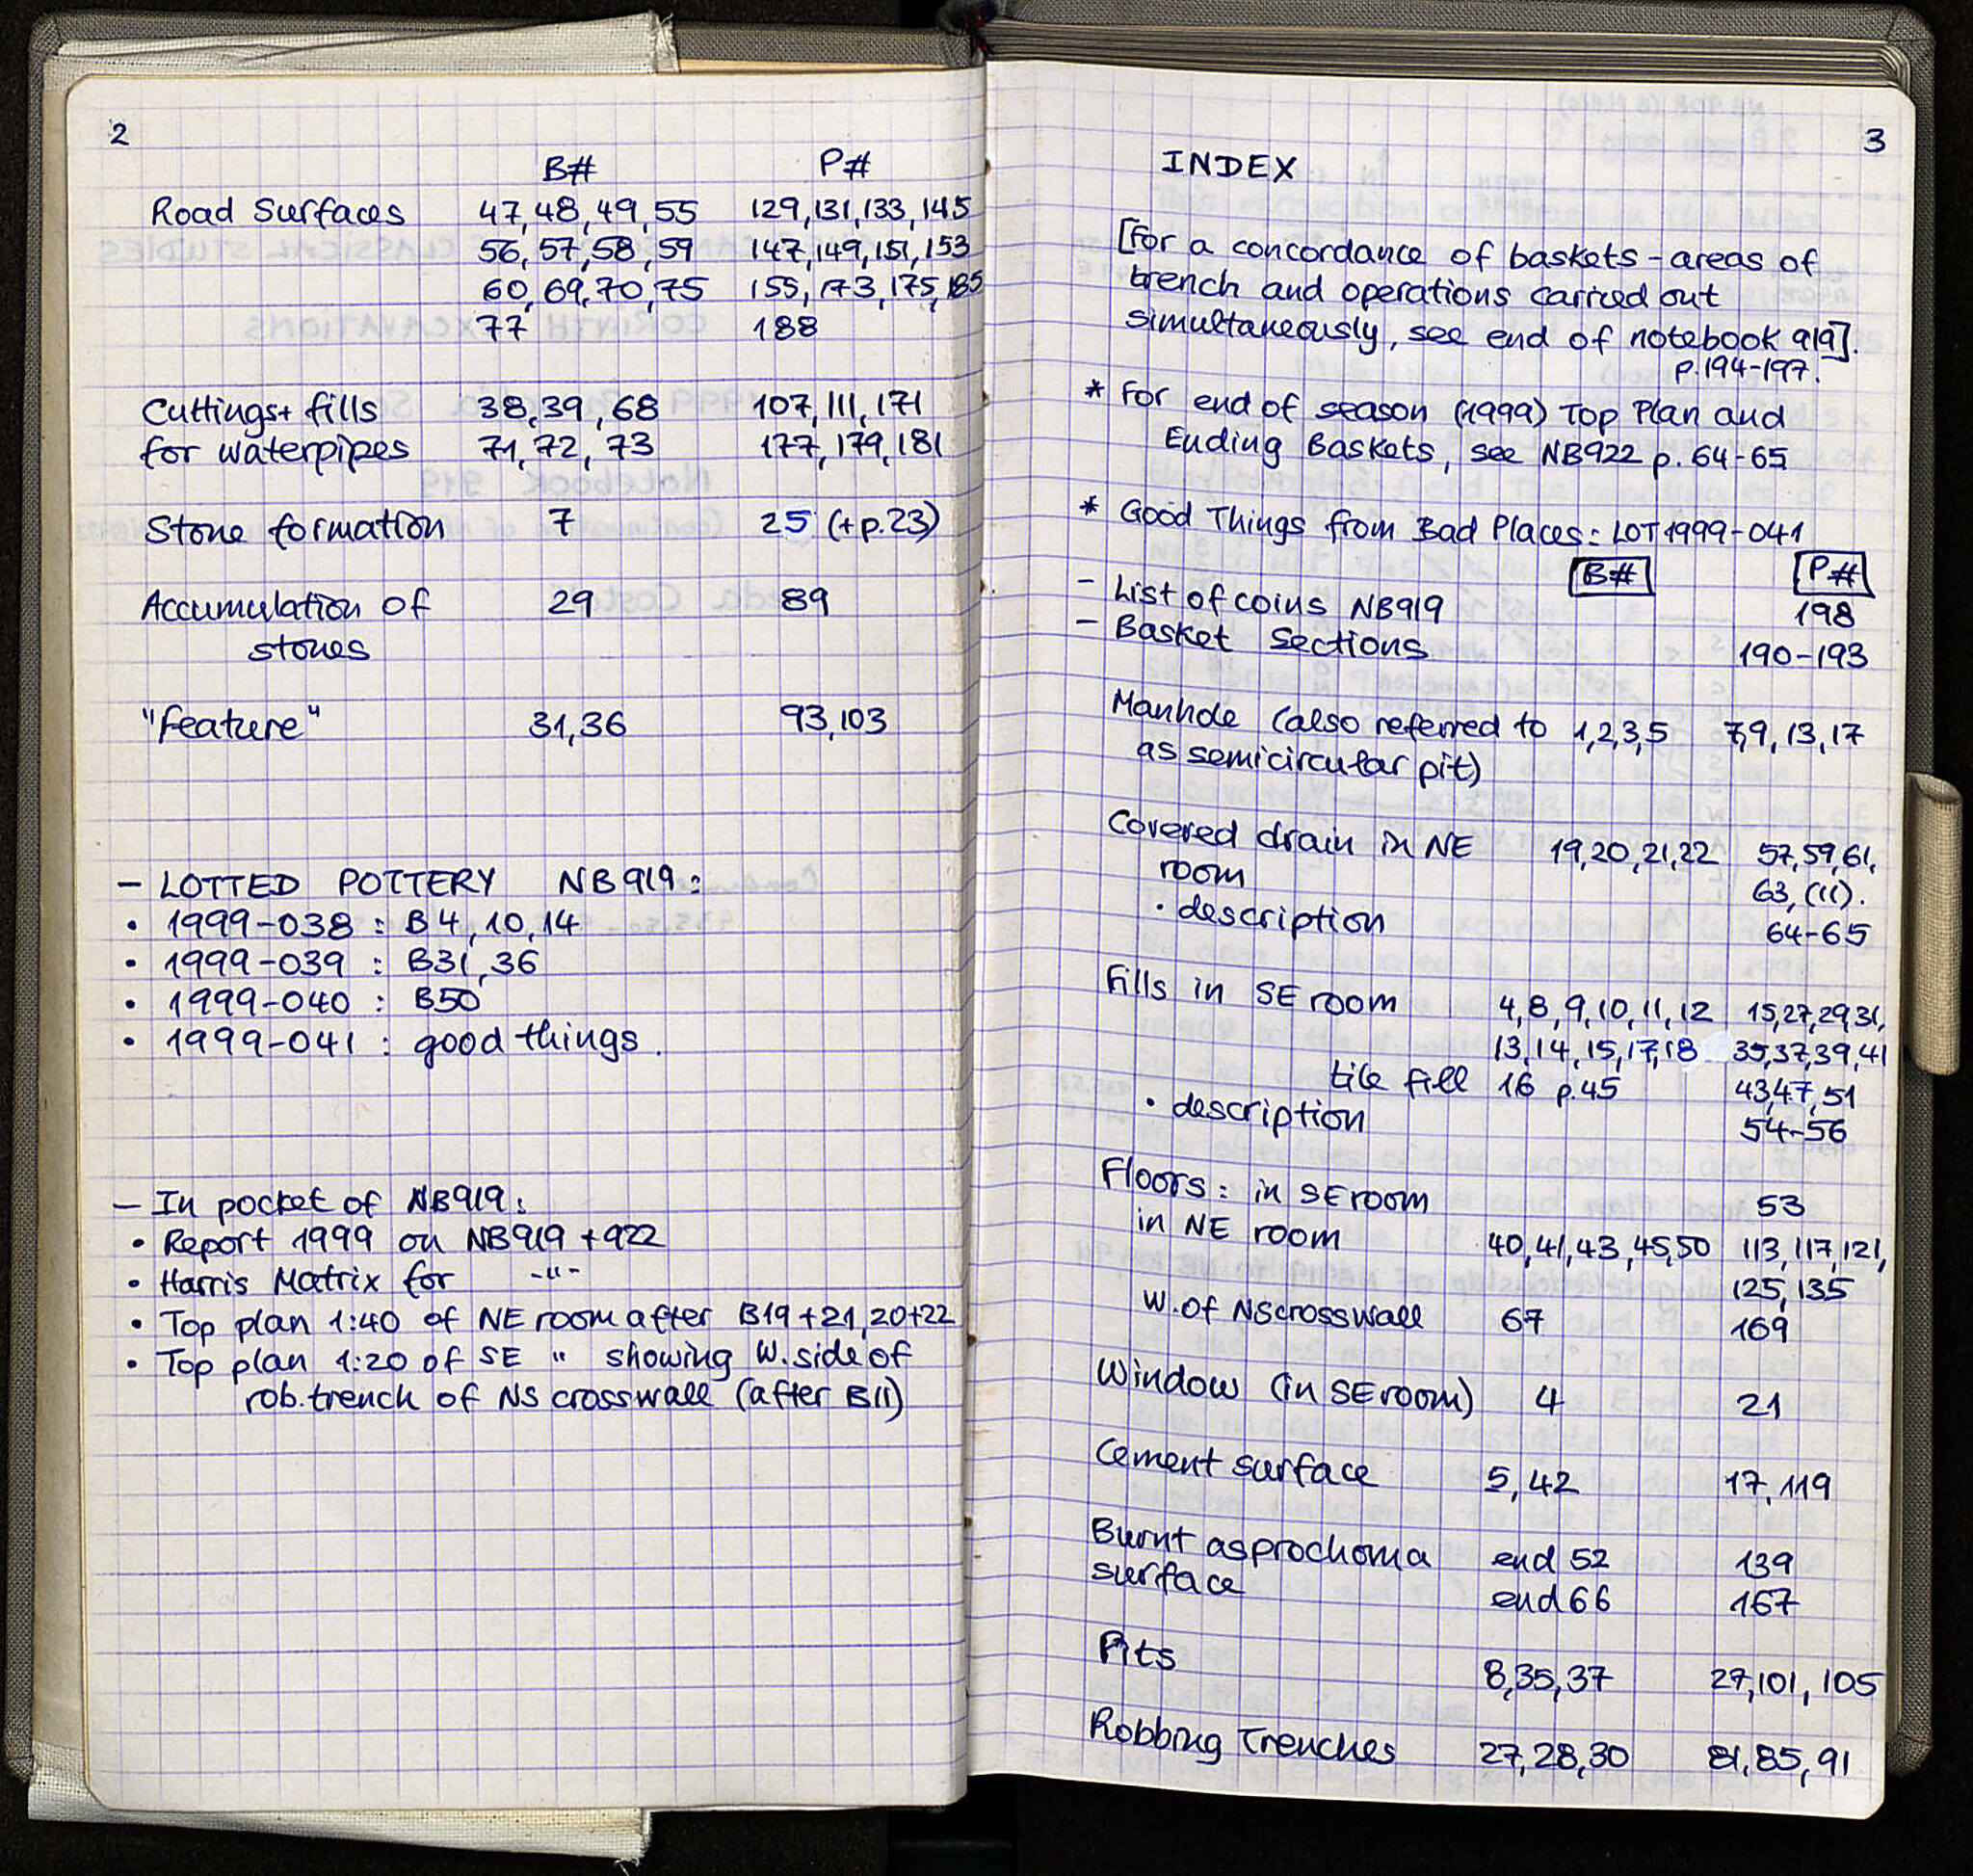 2
B# P#
Road Surfaces 47,48,49,55 129,131,133,145
56,57,58,59 147,149,151,153
60,69,70,75 155,173,175,185
77 188
Cuttings+ fills 38,39,68 107,111,171
for waterpipes 71,72,73 177,179,181
Stone formation 7 25 (+p.23)
Accumulation of 29 89
stones
"Feature" 31,36 93,103
- LOTTED POTTERY NB919:
• 1999-038 : B4,10,14
• 1999-039 : B31,36
• 1999-040 : B50
• 1999-041 : good things.
- In pocket of NB919:
• Report 1999 on NB919 +922
• Harris Matrix for -"-
• Top plan 1:40 of NE room after B19+21,20+22
• Top plan 1:20 of SE " showing W.side of
rob.trench of NS crosswall (after B11)
3
INDEX
[For a concordance of baskets - areas of
trench and operations carried out
simultaneously, see end of notebook 919].
p.194-197.
* For end of season (1999) Top Plan and
Ending Baskets, see NB922 p. 64-65
* Good Things from Bad Places: LOT1999-041
B# P#
- List of coins NB919 198
- Basket sections 190-193
Manhole (also referred to 1,2,3,5 7,9,13,17
as semicircular pit)
Covered drain in NE 19,20,21,22 57,59,61,
room 63,(11).
• description 64-65
Fills in SE room 4,8,9,10,11,12 15,27,29,31,
13,14,15,17,18 35,37,39,41
tile fill 16 p.45 43,47,51
• description 54-56
Floors: in SE room 53
in NE room 40,41,43,45,50 113,117,121,
125,135
W.of NS crosswall 67 169
Window (in SE room) 4 21
Cement surface 5,42 17,119
Burnt asprochoma end 52 139
surface end 66 167
Pits 8,35,37 27,101,105
Robbing Trenches 27,28,30 81,85,91